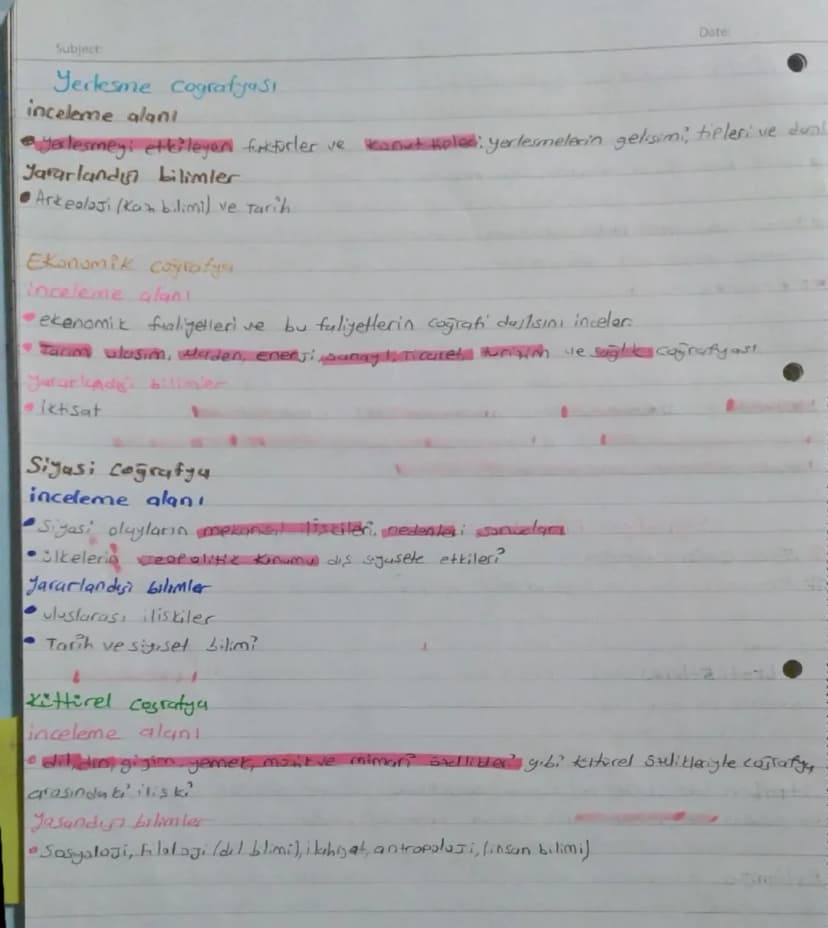 Subject:
Date:
Yerlesme cografyası
inceleme alanı
• yerlesmeyi etkileyen faktörler ve konut yerlesmelerin gelisimi, tipleri ve
Yararlandığı bilimler
• Arkeoloji (Kazı bilimi) ve Tarih
Ekonomik coğrafya
inceleme alanı
• ekenomik faaliyetleri ve bu faliyetlerin coğrafi dağılısını inceler.
• Tarım, ulasım, Maden, enerji, sanayi, Ticaret, turizim ve sağlık coğrafyası
Yararlandığı bilimler
• iktisat
Siyasi coğrafya
inceleme alanı
• Siyasi olayların mekansal ilişkileri, nedenleri sonuçları
• ülkelerin jeopolitik konumu dıs siyasete etkileri
Yararlandığı bilimler
• uluslarası iliskiler
• Tarih ve siyaset bilimi
Kültürel cografya
inceleme alanı
• dil, din, giyim, yemek, müzik ve mimari özellikler gibi kültürel özelliklerle coğrafya
arasındaki iliski
bilimler
• Sosyoloji, filoloji (dil blimi), ilahiyat, antropoloji, (insan bilimi)